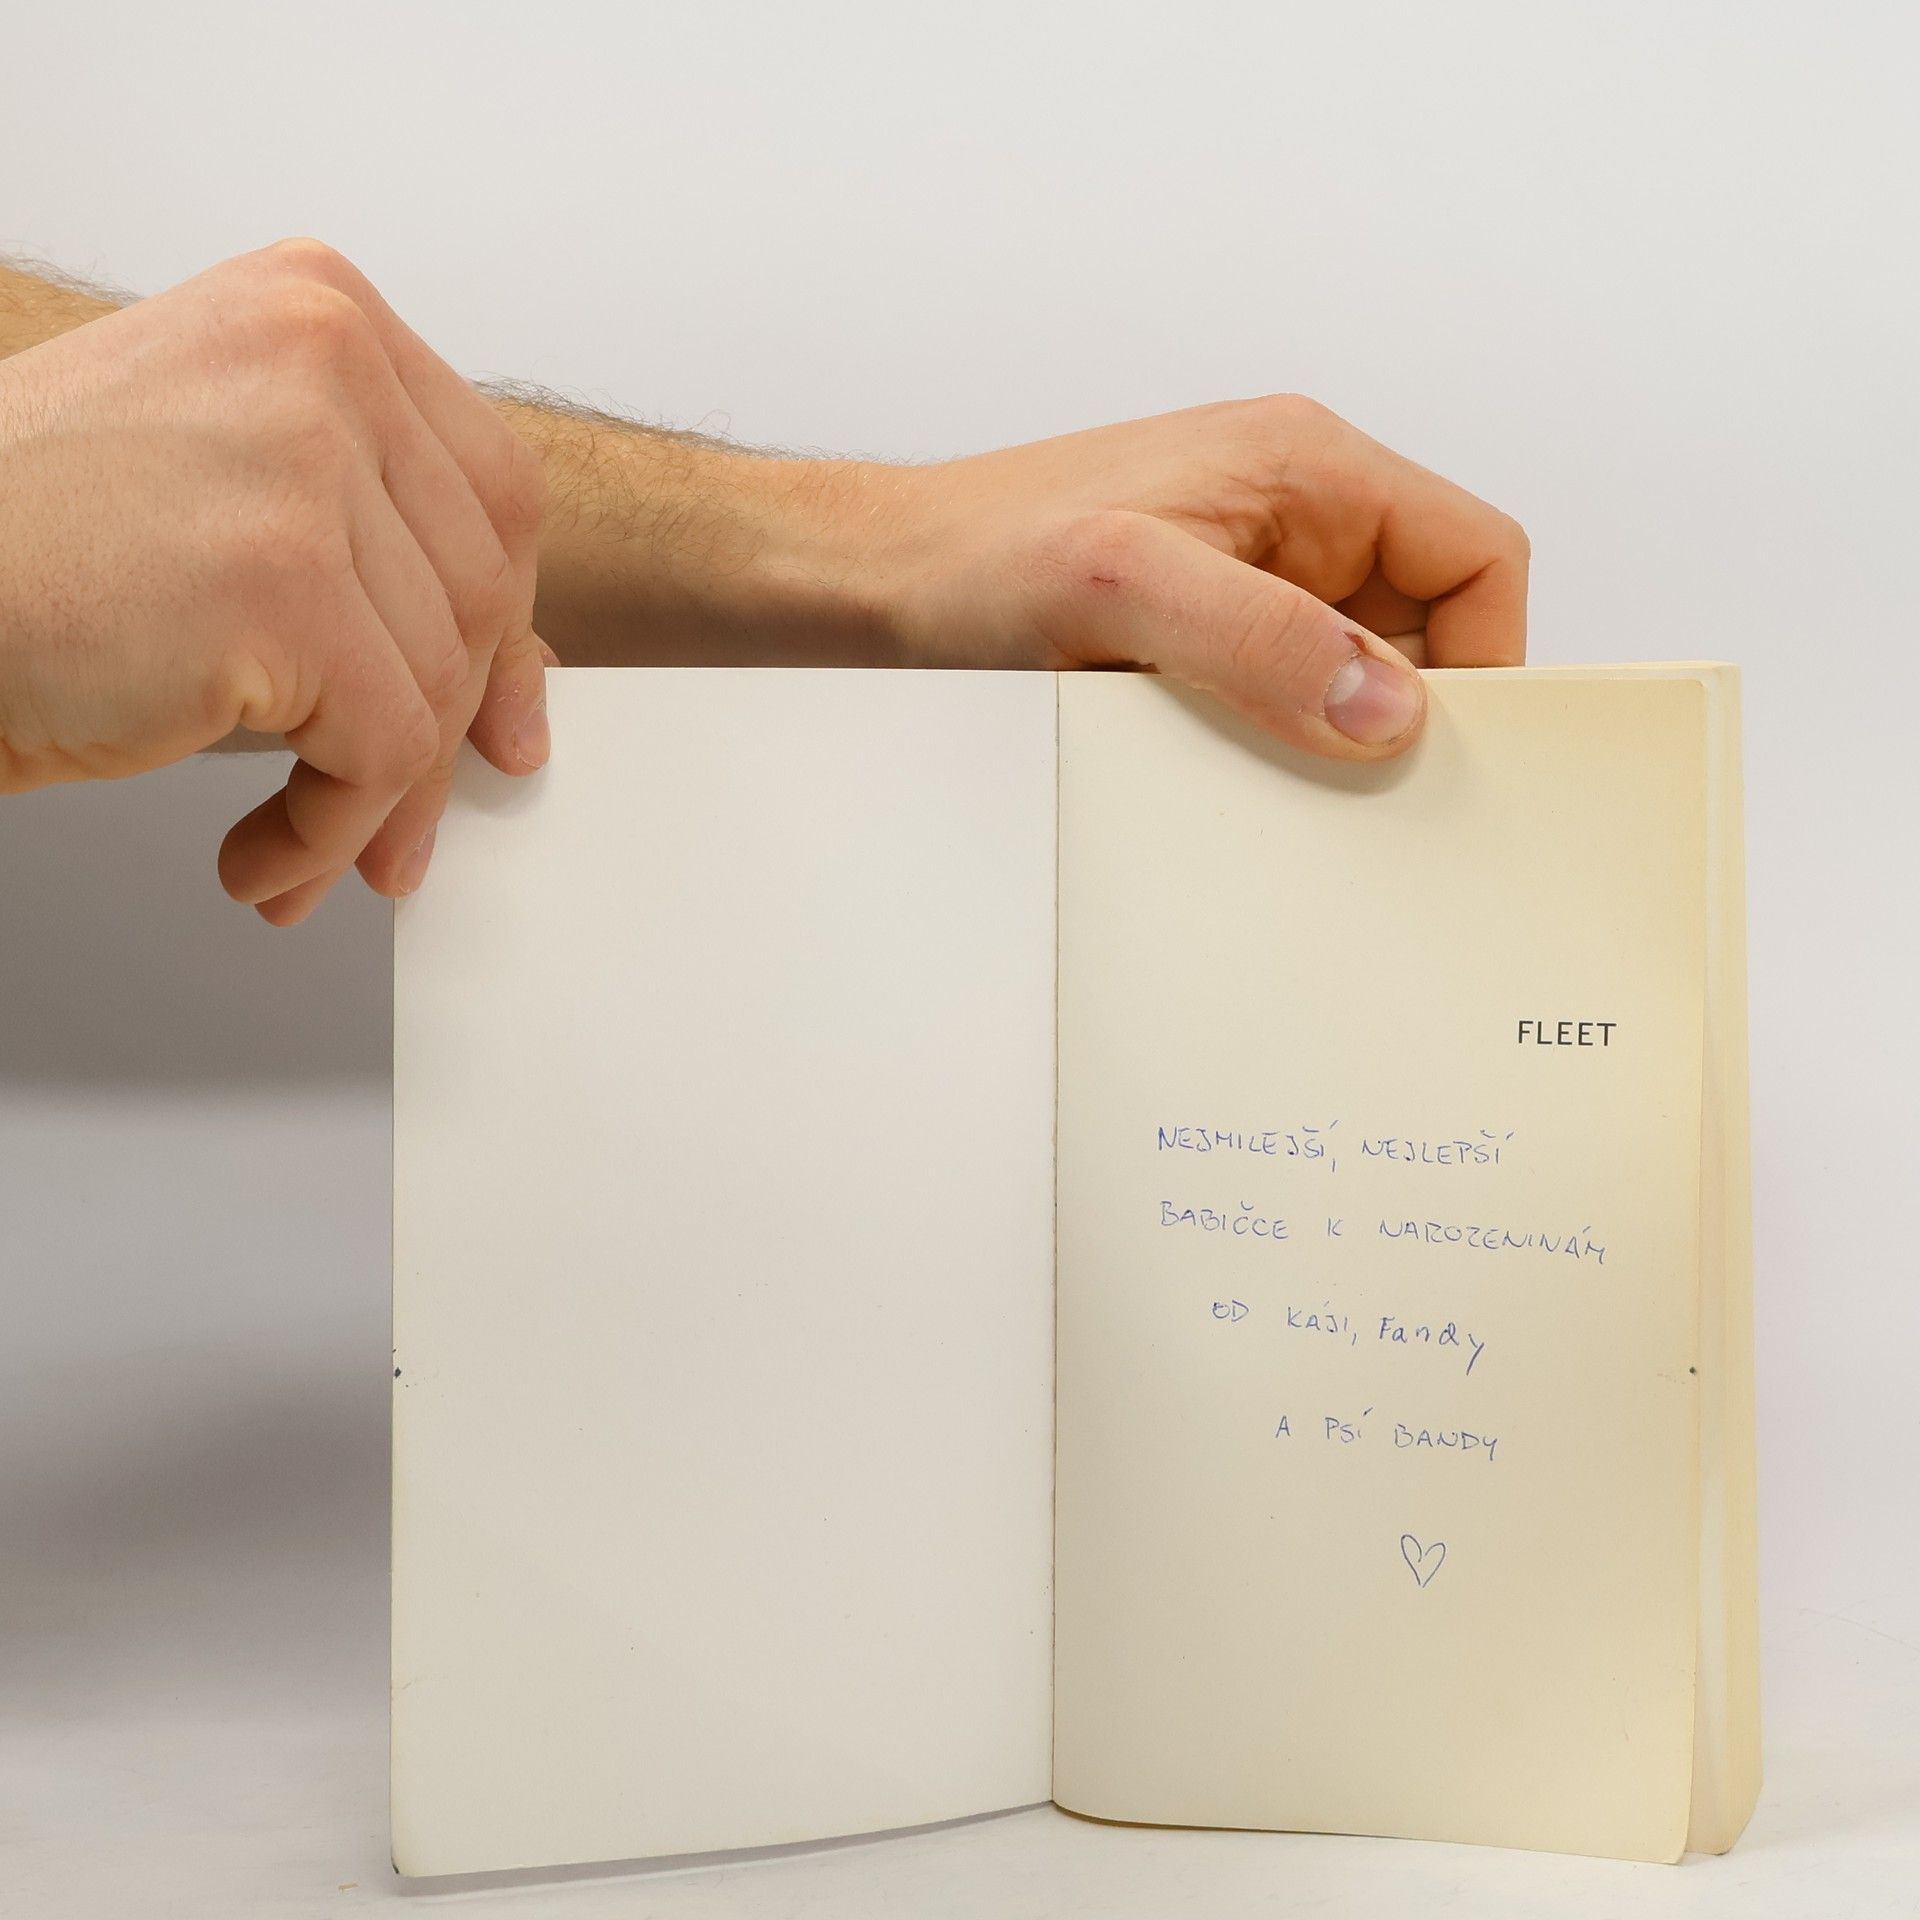 FLEET
NEJMILEJŠÍ, NEJLEPŠÍ
BABIČCE K NAROZENINÁM
OD KÁJI, Fandy
A PSÍ BANDY